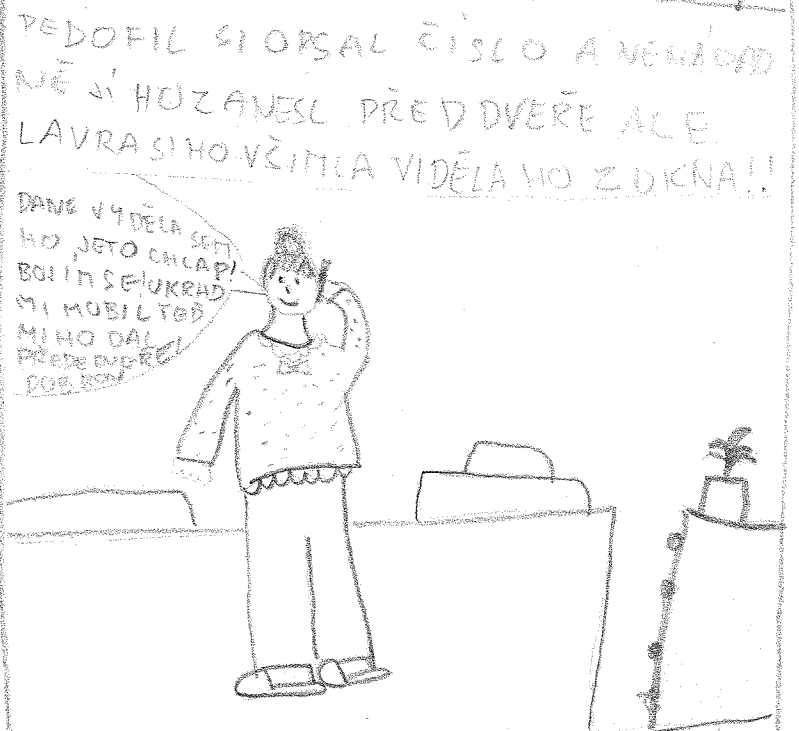 PEDOFIL SI OPSAL ČÍSLO A NENÁPAD
NĚ JÍ HO ZANESL PŘED DVEŘE ALE
LAVRA SI HO VŠIMLA VIDĚLA HO Z OKNA!!
DANE VYDĚLA SEM
HO, JE TO CHLAP!
BOJIM SE! UKRAD
MI MOBIL TEĎ
MI HO DAL
PŘEDE DVEŘE!